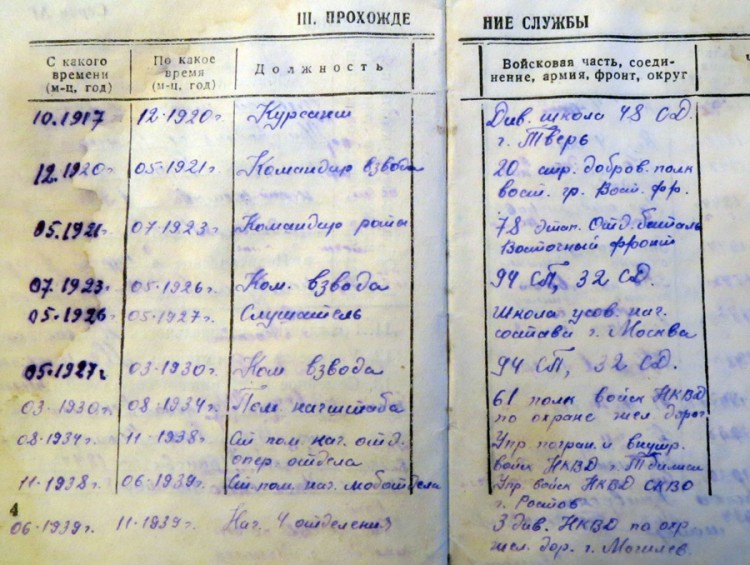 III. ПРОХОЖДЕ НИЕ СЛУЖБЫ
С какого времени (м-ц, год)
По какое время (м-ц, год)
Должность
Войсковая часть, соеди-
нение, армия, фронт, округ
10.1917 12.1920г. Курсант Див. школа 48 СД.
г. Тверь
12.1920 05.1921г. Командир взвода 20 стр. добров. полк
вост. гр. Вост. фр.
05.1921г. 07.1923г. Командир роты 78 этап. Отд. баталь
Восточный фронт
07.1923г. 05.1926г. Ком. взвода 94 СП, 32 СД.
05.1926 05.1927г. Слушатель Школа усов. нач.
состава г. Москва
05.1927г. 03.1930г. Ком взвода 94 СП, 32 СД.
03.1930г. 08.1934г. Пом. начштаба 61 полк войск НКВД
по охране жел. дорог.
08.1934г. 11.1938г. Ст пом. нач. отд. Упр погран. и внутр.
опер отдела войск НКВД г. Тбилиси
11.1938г. 06.1939г. Ст пом. нач. моботдела Упр. войск НКВД СКВО
г. Ростов
4
06.1939г. 11.1939г. Нач. 4 отделения 3 див. НКВД по охр
жел. дор. г. Могилев.